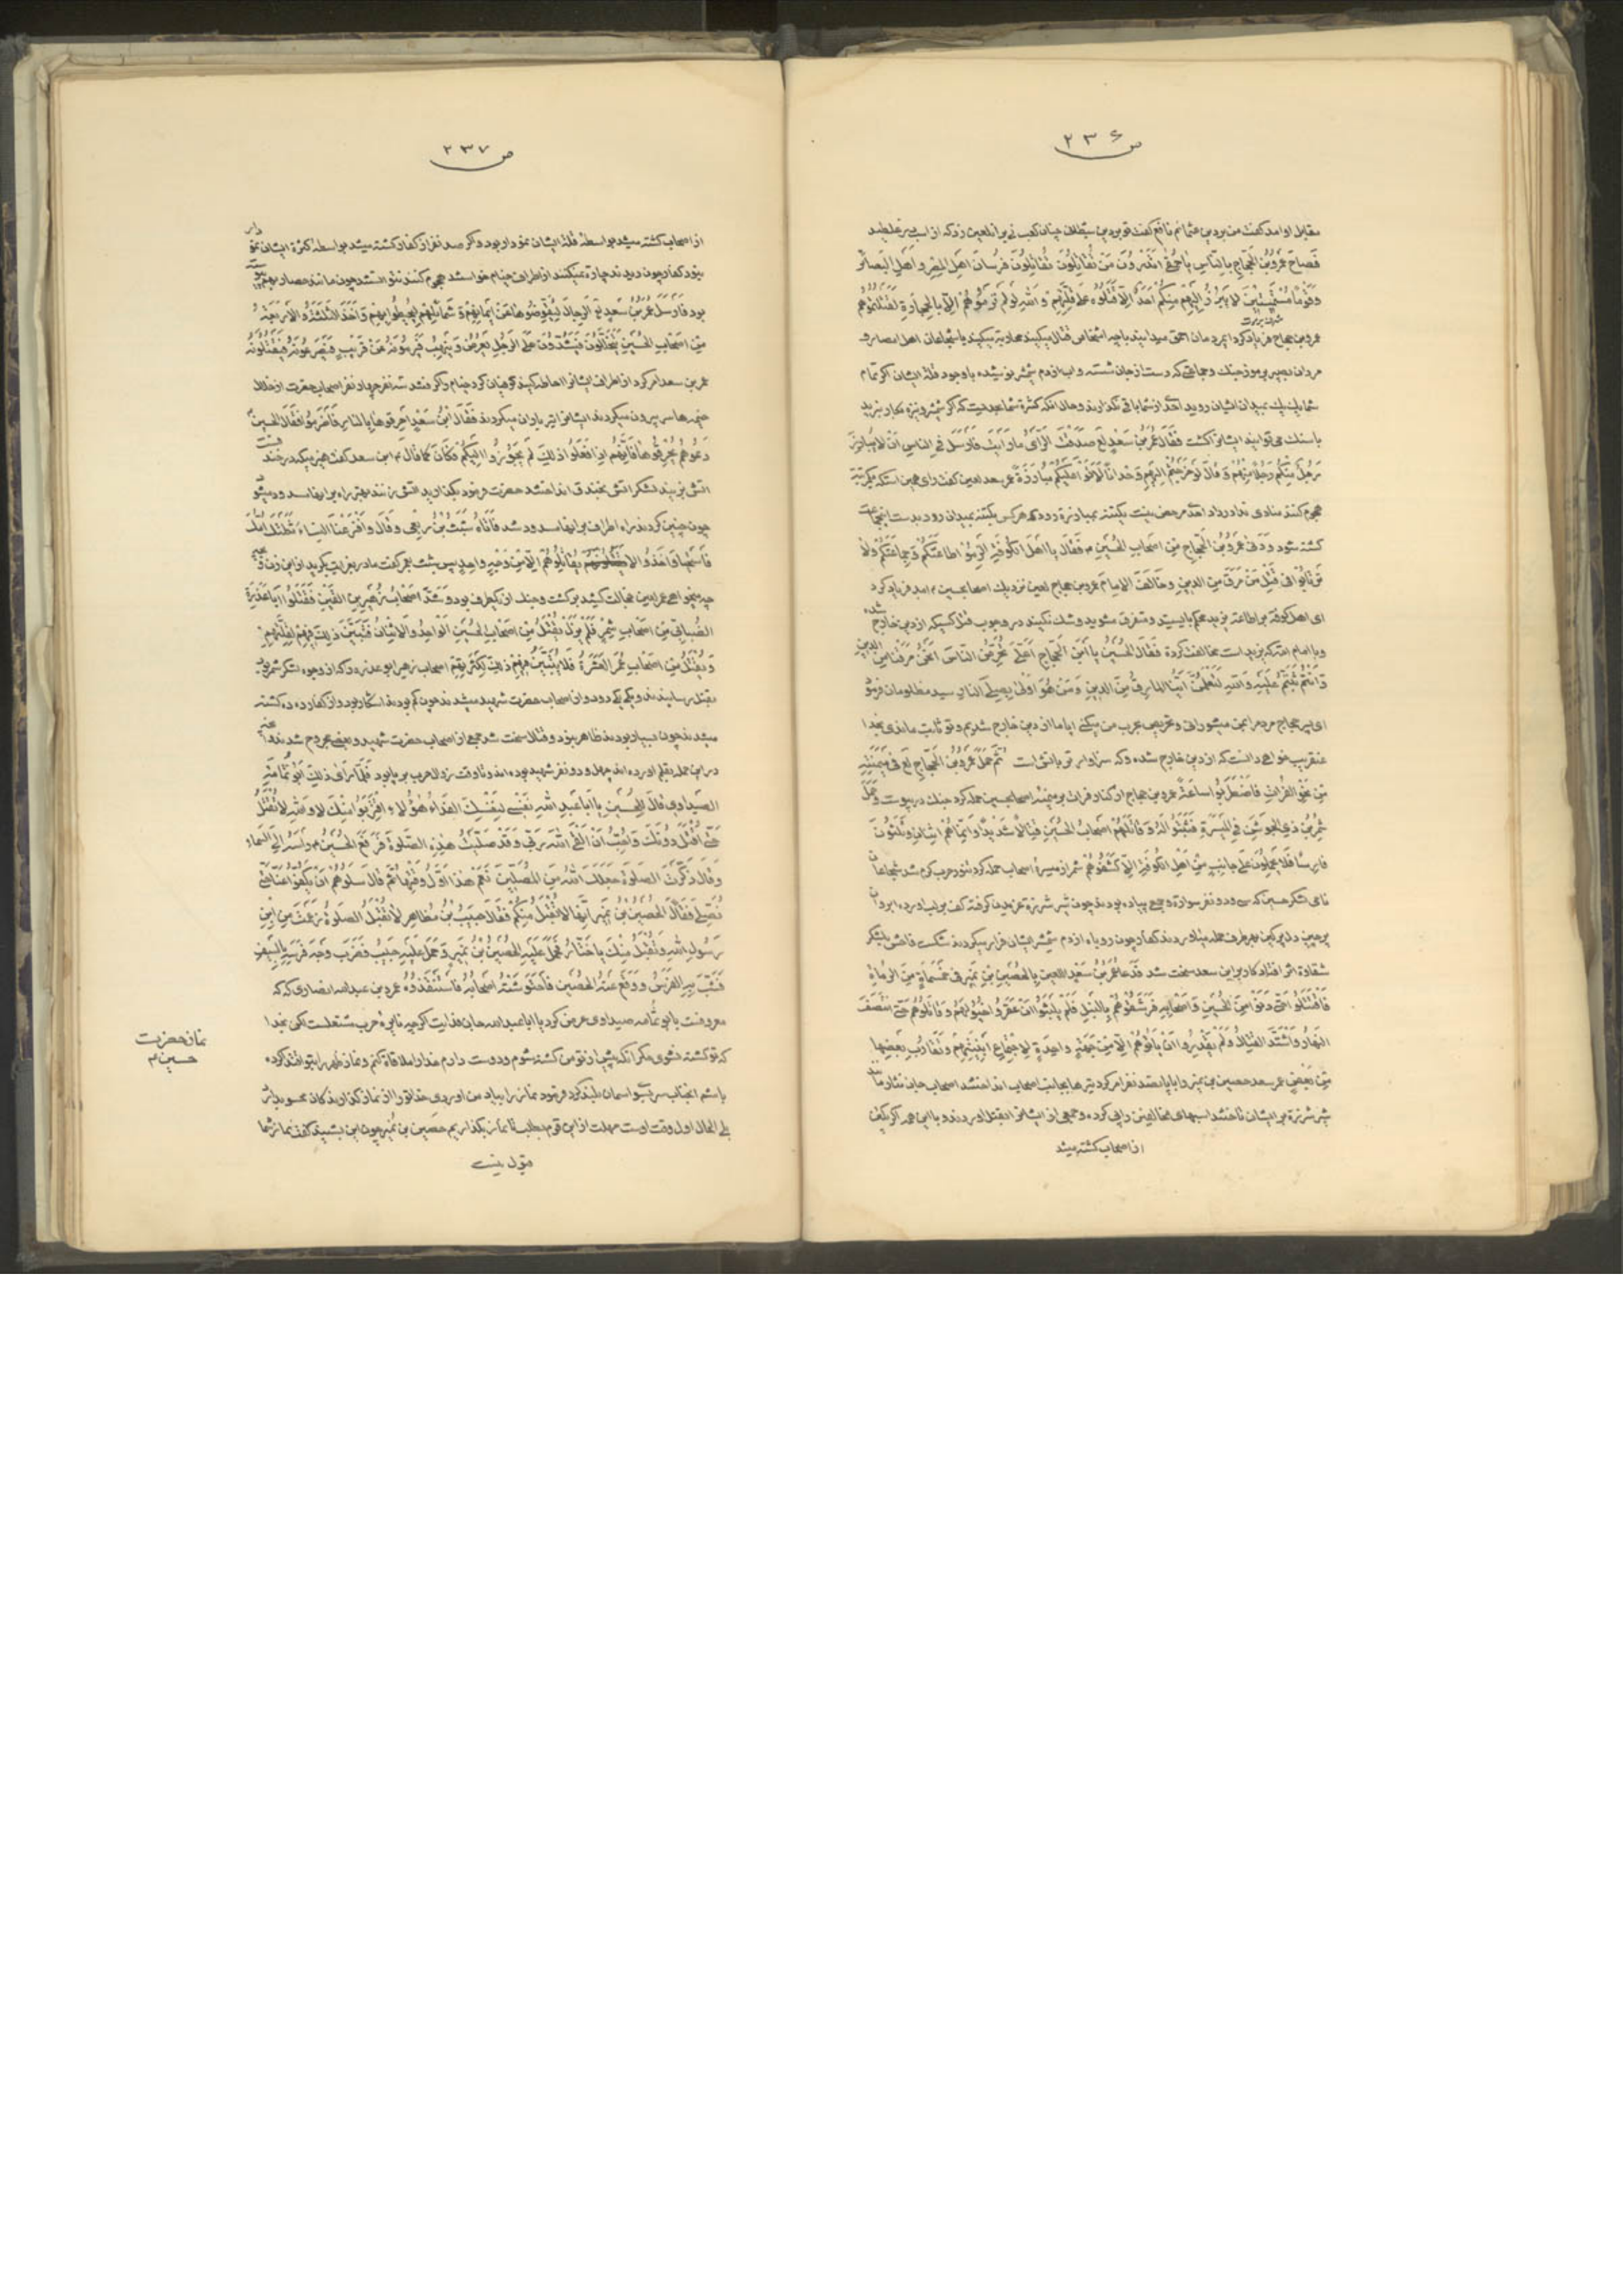 ص ۲۳۶
مقابل او آمد گفت من بر دین عثمانم نافع گفت تو بر دین شیطانی از اسب در غلطید
فَصاحَ عَمْرُو بْنُ الْحَجّاجِ بِالنّاسِ یا حَمْقی اَتَدْرُونَ مَنْ تُقاتِلُونَ تُقاتِلُونَ فُرْسانَ اَهْلِ الْمِصْرِ وَ اَهْلَ الْبَصائِرِ
وَ قَوْماً مُسْتَمِیتِینَ لا یَبْرُزُ اِلَیْهِمْ مِنْکُمْ اَحَدٌ اِلّا قَتَلُوهُ عَلی قِلَّتِهِمْ وَ اللهِ لَوْ لَمْ تَرْمُوهُمْ اِلّا بِالْحِجارَةِ لَقَتَلْتُمُوهُمْ
عمرو بن حجاج فریاد کرد ای مردمان احمق میدانید با چه اشخاص قتال میکنید محاربه میکنید با شجاعان اهل امصار و
مردان بصیر بر رموز جنگ و جماعتی که دست از جان شسته و آب از دم شمشیر نوشیده با وجود قلة ایشان اگر تمام
شما یک یک بمیدان ایشان روید احدی از شما باقی نگذارند و حال آنکه کثرة شما بحدیست که اگر شمشیر و نیزه بکار نبرید
با سنگ می توانید ایشانرا کشت فَقالَ عُمَرُ بْنُ سَعْدٍ لع صَدَقْتَ الرَّأْیُ ما رَاَیْتَ فَاَرْسَلَ فِی النّاسِ اَنْ لا یُبارِزَ
رَجُلٌ مِنْکُمْ رَجُلاً مِنْهُمْ وَ قالَ لَوْ خَرَجْتُمْ اِلَیْهِمْ وَحْداناً لَاَتَوْا عَلَیْکُمْ مُبارَزَةً عمر سعد لعین گفت رای همین است که یکمرتبه
هجوم کنند منادی ندا در داد احدی مرخص نیست یکتنه بمبارزة رود که هرکس یکتنه بمیدان رود بدست این جماعت
کشته شود وَ دَنی عَمْرُو بْنُ الْحَجّاجِ مِنْ اَصْحابِ الْحُسَیْنِ م فَقالَ یا اَهْلَ الْکُوفَةِ الْزَمُوا طاعَتَکُمْ وَ جَماعَتَکُمْ وَ لا
تَرْتابُوا فی قَتْلِ مَنْ مَرَقَ مِنَ الدِّینِ وَ خالَفَ الْاِمامَ عمرو بن حجاج لعین نزدیک اصحاب حسین م آمد فریاد کرد
ای اهل کوفه بر اطاعة یزید محکم بایستید و متفرق مشوید و شک نکنید در وجوب قتل کسیکه از دین خارج شده
و با امام امة که یزید است مخالفت کردة فَقالَ الْحُسَیْنُ یَا ابْنَ الْحَجّاجِ اَعَلَیَّ تُحَرِّضُ النّاسَ اَنَحْنُ مَرَقْنا مِنَ الدِّینِ
وَ اَنْتُمْ ثَبَتُّمْ عَلَیْهِ وَ اللهِ لَتَعْلَمُنَّ اَیُّنَا الْمارِقُ مِنَ الدِّینِ وَ مَنْ هُوَ اَوْلی بِصِلِیِّ النّارِ سید مظلومان فرمود
ای پسر حجاج مردم را بمن میشورانی و تحریص بحرب من میکنی ایا ما از دین خارج شدیم و تو ثابت ماندی بخدا
عنقریب خواهی دانست که از دین خارج شده و که سزاوارتر باتش است ثُمَّ حَمَلَ عَمْرُو بْنُ الْحَجّاجِ لع فی مَیْمَنَتِهِ
مِنْ نَحْوِ الْفُراتِ فَاضْطَرَبُوا ساعَةً عمرو بن حجاج از کنار فرات بر میمنه اصحاب حسین حمله کرد جنگ در پیوست وَ حَمَلَ
شِمْرُ بْنُ ذِی الْجَوْشَنِ فِی الْمَیْسَرَةِ فَثَبَتُوا لَهُ وَ قاتَلَهُمْ اَصْحابُ الْحُسَیْنِ قِتالاً شَدِیداً وَ اِنَّما هُمْ اثْنانِ وَ ثَلثُونَ
فارِساً فَلا یَحْمِلُونَ عَلی جانِبٍ مِنْ اَهْلِ الْکُوفَةِ اِلّا کَشَفُوهُمْ شمر از میسرة اصحاب حمله کرد تنور حرب گرم شد شجاعان
نامی لشکر حسین که سی و دو نفر سوارة و جمعی پیاده بودند چون شیر شرزة غریدن گرفته کف بر لب اورده ابروان
پر چین دل پر کین بهر طرف حمله میاوردند کفار چون روباه از دم شمشیر ایشان فرار میکردند شکست فاحش بلشکر
شقاوة اثر افتاد کار بر ابن سعد سخت شد فَدَعا عُمَرُ بْنُ سَعْدِ اللَّعِینِ بِالْحُصَیْنِ بْنِ نُمَیْرٍ فی خَمْسَمِأَةٍ مِنَ الرُّماةِ
فَاقْتَتَلُوا حَتّی دَنَوْا مِنَ الْحُسَیْنِ وَ اَصْحابِهِ فَرَشَقُوهُمْ بِالنَّبْلِ فَلَمْ یَلْبَثُوا اَنْ عَقَرُوا خُیُولَهُمْ وَ قاتَلُوهُمْ حَتّی انْتَصَفَ
النَّهارُ وَ اشْتَدَّ الْقِتالُ وَ لَمْ یَقْدِرُوا اَنْ یَأْتُوهُمْ اِلّا مِنْ جِهَةٍ واحِدَةٍ لِاجْتِماعِ اَبْنِیَتِهِمْ وَ تَقارُبِ بَعْضِها
مِنْ بَعْضٍ عمر سعد حصین بن نمیر را با پانصد نفر امر کرد تیرها بجانب اصحاب انداختند اصحاب جان نثار مانند
شیر شرزة بر ایشان تاختند اسبهای مخالفین را پی کرده و جمعی از ایشانرا بقتل اوردند و با این همه اگر یکنفر
از اصحاب کشته میشد
ص ۲۳۷
از اصحاب کشته میشد بواسطه قلة ایشان نمودار بود و اگر صد نفر از کفار کشته میشد بواسطه کثرة ایشان نمودار
نبود کفار چون دیدند چارة نمیکنند از اطراف خیام خواستند هجوم کنند نتوانستند چون مانند حصار بهم پیوسته
بود فَاَرْسَلَ عُمَرُ بْنُ سَعْدٍ لع الرِّجالَ لِیُقَوِّضُوها عَنْ اَیْمانِهِمْ وَ شَمائِلِهِمْ لِیُحِیطُوا بِهِمْ وَ اَخَذَ الثَّلثَةُ وَ الْاَرْبَعَةُ
مِنْ اَصْحابِ الْحُسَیْنِ یَتَخَلَّلُونَ فَیَشُدُّونَ عَلَی الرَّجُلِ یَعْرِضُ وَ یَنْهَبُ فَیَرْمُونَهُ عَنْ قَرِیبٍ فَیَصْرَعُونَهُ فَیَقْتُلُونَهُ
عمر بن سعد امر کرد از اطراف ایشانرا احاطه کنید کوفیان گرد خیام را گرفتند سه نفر چهار نفر اصحاب حضرت از خلال
خیمه ها سر بیرون میکردند ایشانرا تیر باران میکردند فَقالَ ابْنُ سَعْدٍ اَحْرِقُوها بِالنّارِ فَاَضْرَمُوا فَقالَ الْحُسَیْنُ
دَعُوهُمْ یُحْرِقُوها فَاِنَّهُمْ اِذا فَعَلُوا ذلِکَ لَمْ یَجُوزُوا اِلَیْکُمْ فَکانَ کَما قالَ م ابن سعد گفت
اتش بزنید لشکر اتش بخندق انداختند حضرت فرمود بگذارید اتش زنند بهتر راه بر آنها مسدود میشود
چون چنین کردند راه اطراف بر آنها مسدود شد فَاَتاهُ شَبَثُ بْنُ رِبْعِی وَ قالَ وَ اَفْزَعْنَا النِّساءَ ثَکَلَتْکَ اُمُّکَ
فَاسْتَحْیا وَ اَخَذُوا لا یُقاتِلُونَهُمْ اِلّا مِنْ وَجْهٍ واحِدٍ پس شبث بعمر گفت مادر بعزایت بگرید از این زنان
چه میخواهی عمر لعین خجالت کشید برگشت و جنگ از یکطرف بود وَ شَدَّ اَصْحابُ زُهَیْرِ بْنِ الْقَیْنِ فَقَتَلُوا اَبا عَذْرَةَ
الضِّبابِیَّ مِنْ اَصْحابِ شِمْرٍ فَلَمْ یَزَلْ یُقْتَلُ مِنْ اَصْحابِ الْحُسَیْنِ الْواحِدُ وَ الْاِثْنانِ فَتَبَیَّنَ ذلِکَ فِیهِمْ لِقِلَّتِهِمْ
وَ یُقْتَلُ مِنْ اَصْحابِ عُمَرَ الْعَشَرَةُ فَلا یُتَبَیَّنُ فِیهِمْ ذلِکَ لِکَثْرَتِهِمْ اصحاب زهیر ابو عذره را که از وجوه لشکر شمر بود
بقتل رسانیدند و یکی یکی دو دو از اصحاب حضرت شهید میشدند چون کم بودند اشکار بود و از کفار ده ده کشته
میشدند چون بسیار بودند ظاهر نبود و قتال سخت شد جمعی از اصحاب حضرت شهید و بعضی مجروح شدند
در این حمله بقلم اورده اند چهل و دو نفر شهید بوده اند و تا وقت زوال حرب بر پا بود فَلَمّا رَای ذلِکَ اَبُو ثُمامَةِ
الصَّیْداوِی قالَ لِلْحُسَیْنِ یا اَبا عَبْدِ اللهِ نَفْسِی لِنَفْسِکَ الْفِداءُ هؤُلاءِ اقْتَرَبُوا مِنْکَ لا وَ اللهِ لا تُقْتَلُ
حَتّی اُقْتَلَ دُونَکَ وَ اُحِبُّ اَنْ اَلْقَی اللهَ رَبِّی وَ قَدْ صَلَّیْتُ هذِهِ الصَّلوةَ فَرَفَعَ الْحُسَیْنُ م رَأْسَهُ اِلَی السَّماءِ
وَ قالَ ذَکَرْتَ الصَّلوةَ جَعَلَکَ اللهُ مِنَ الْمُصَلِّینَ نَعَمْ هذا اَوَّلُ وَقْتِها ثُمَّ قالَ سَلُوهُمْ اَنْ یَکُفُّوا عَنّا حَتّی
نُصَلِّیَ فَقالَ الْحُصَیْنُ بْنُ نُمَیْرٍ اِنَّها لا تُقْبَلُ مِنْکُمْ فَقالَ حَبِیبُ بْنُ مُظاهِرٍ لا تُقْبَلُ الصَّلوةُ زَعَمْتَ مِنِ ابْنِ
رَسُولِ اللهِ وَ تُقْبَلُ مِنْکَ یا خَتّارُ فَحَمَلَ عَلَیْهِ الْحُصَیْنُ بْنُ نُمَیْرٍ وَ حَمَلَ عَلَیْهِ حَبِیبٌ فَضَرَبَ وَجْهَ فَرَسِهِ بِالسَّیْفِ
فَشَبَّ بِهِ الْفَرَسُ وَ وَقَعَ عَنْهُ الْحُصَیْنُ فَاحْتَوَشَتْهُ اَصْحابُهُ فَاسْتَنْقَذُوهُ عمرو بن عبدالله انصاری که
معروفست بابو ثمامه صیداوی عرض کرد یا ابا عبدالله جان فدایت اگر چه نایره حرب مشتعلست لکن بخدا
که تو کشته نشوی مگر آنکه پیش از تو من کشته شوم و دوست دارم خدا را ملاقاة کنم و نماز ظهر را بتو اقتدا کرده
باشم انجناب سر بسوی اسمان بلند کرد فرمود نماز را بیاد من اوردی خدا تو را از نماز گذارندگان محسوب دارد
بلی الحال اول وقت اوست مهلت از این قوم بطلب تا نماز بگذاریم حصین بن نمیر چون این بشنید گفت نماز شما
قبول نیست
نماز حضرت
حسین م